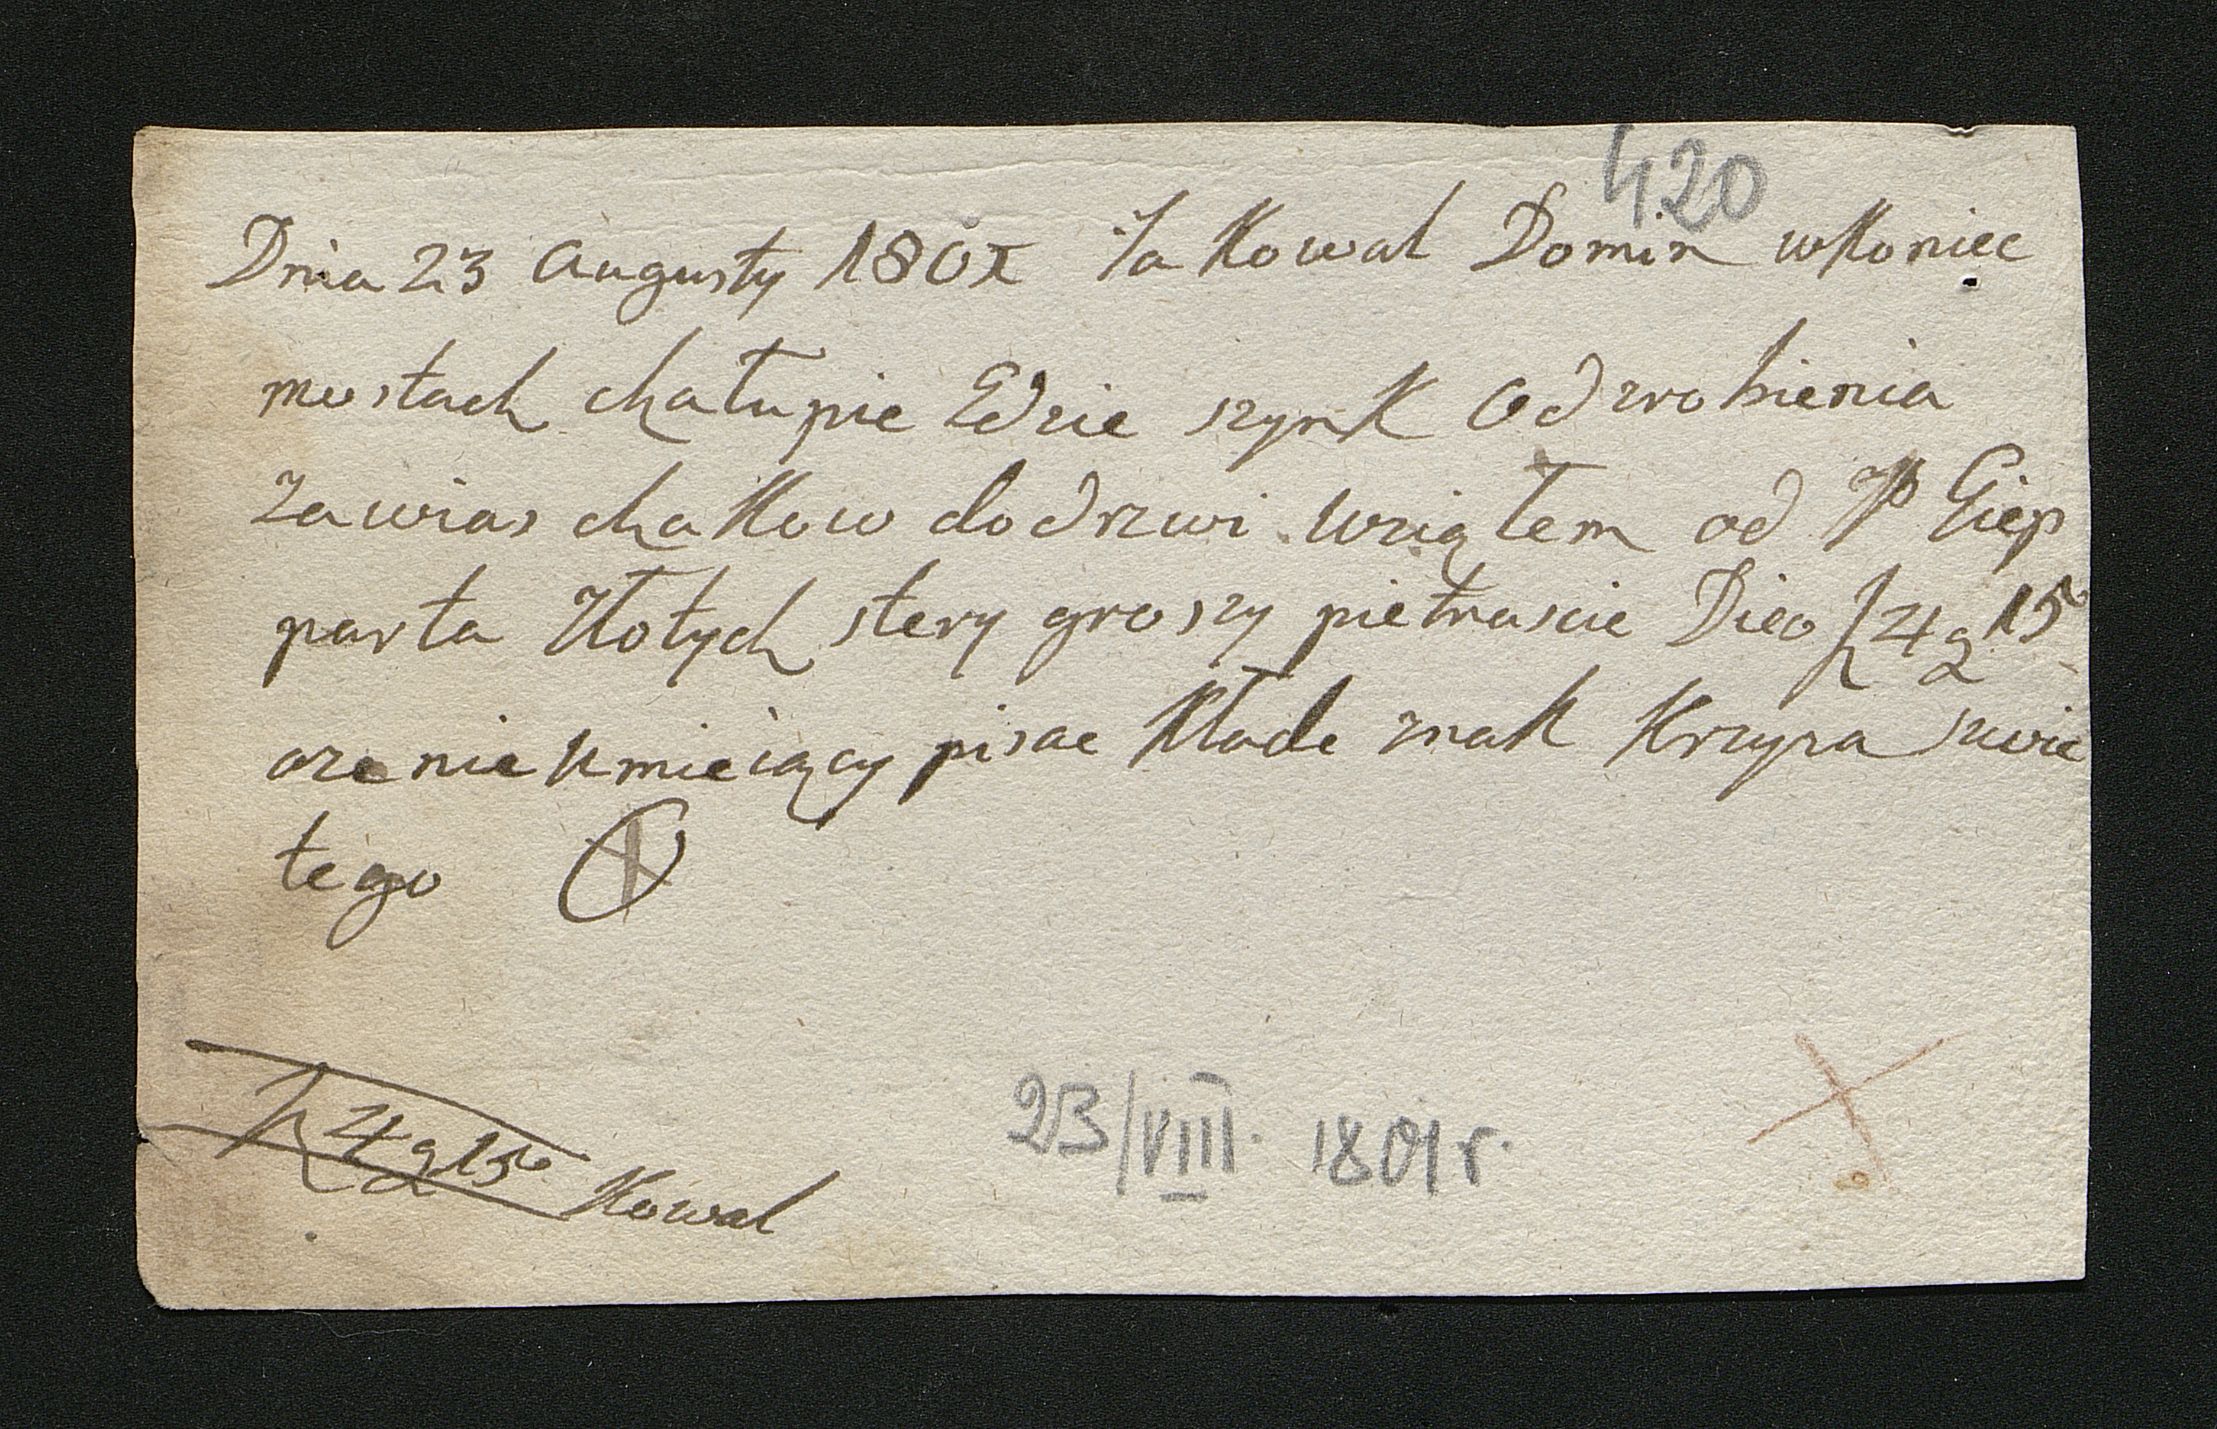 420
Dnia 23 Augusty 1801 Ja Kowal Domin w Koniec
mostach chałupie Gdzie szynk Od zrobienia
zawias chakow do drzwi wziąłem od JP Giep
parta Złotych stery groszy pietnascie Dico f 4 g 15
oze nie umieiący pisac kłade znak Krzyza swie
tego
f 4 g 15 Kowal
23/VIII. 1801 r.